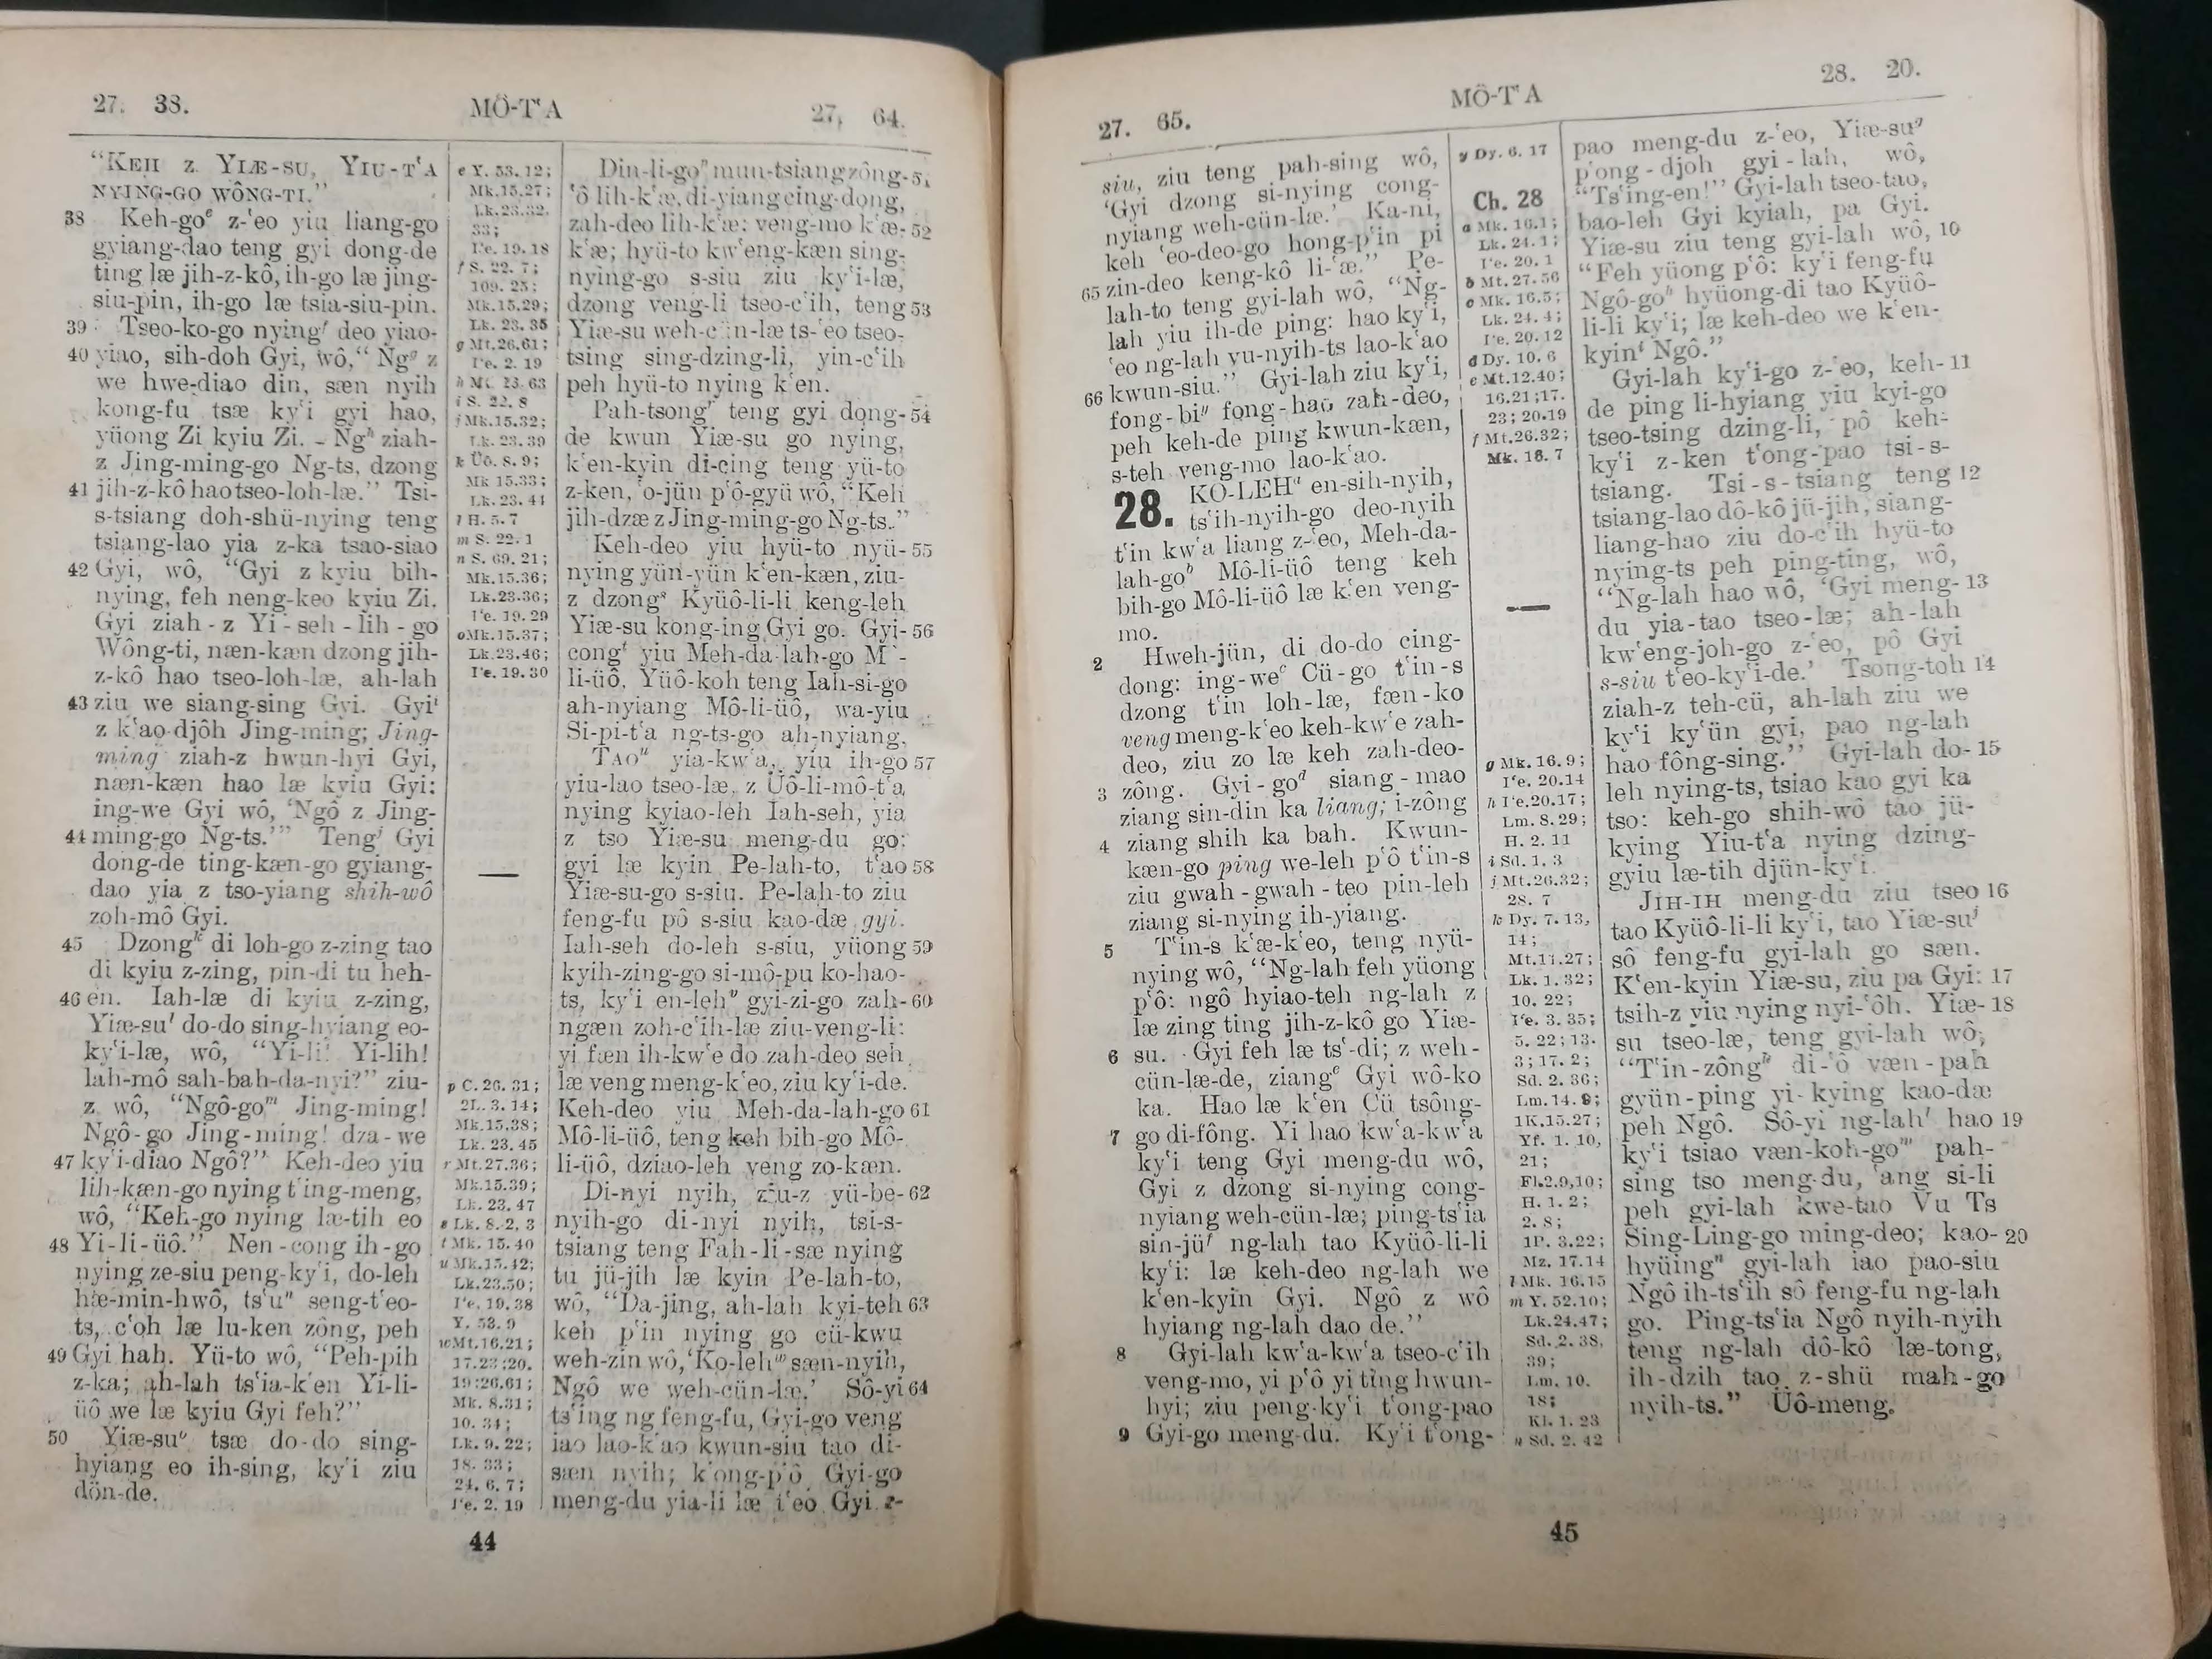 27. 38.
MÔ-TʻA
27. 64.
“KEH Z YIÆ-SU, YIU-TʻA
NYING-GO WÔNG-TI.”
38 Keh-goᵉ z-ʻeo yiu liang-go
gyiang-dao teng gyi dong-de
ting læ jih-z-kô, ih-go læ jing-
siu-pin, ih-go læ tsia-siu-pin.
39 Tseo-ko-go nyingᶠ deo yiao-
40 yiao, sih-doh Gyi, wô, “Ngᵍ z
we hwe-diao din, sæn nyih
kong-fu tsæ kyʻi gyi hao,
yüong Zi kyiu Zi. Ngʰ ziah-
z Jing-ming-go Ng-ts, dzong
41 jih-z-kô hao tseo-loh-læ.” Tsi-
s-tsiang doh-shü-nying teng
tsiang-lao yia z-ka tsao-siao
42 Gyi, wô, “Gyi z kyiu bih-
nying, feh neng-keo kyiu Zi.
Gyi ziah-z Yi-seh-lih-go
Wông-ti, næn-kæn dzong jih-
z-kô hao tseo-loh-læ, ah-lah
43 ziu we siang-sing Gyi. Gyiⁱ
z kʻao-djôh Jing-ming; Jing-
ming ziah-z hwun-hyi Gyi,
næn-kæn hao læ kyiu Gyi:
ing-we Gyi wô, ‘Ngô z Jing-
44 ming-go Ng-ts.’” Tengʲ Gyi
dong-de ting-kæn-go gyiang-
dao yia z tso-yiang shih-wô
zoh-mô Gyi.
45 Dzongᵏ di loh-go z-zing tao
di kyiu z-zing, pin-di tu heh-
46 en. Iah-læ di kyiu z-zing,
Yiæ-suˡ do-do sing-hyiang eo-
kyʻi-læ, wô, “Yi-li! Yi-lih!
lah-mô sah-bah-da-nyi?” ziu-
z wô, “Ngô-goᵐ Jing-ming!
Ngô-go Jing-ming! dza-we
47 kyʻi-diao Ngô?” Keh-deo yiu
lih-kæn-go nying tʻing-meng,
wô, “Keh-go nying læ-tih eo
48 Yi-li-üô.” Nen-cong ih-go
nying ze-siu peng-kyʻi, do-leh
hæ-min-hwô, tsʻuⁿ seng-tʻeo-
ts, cʻoh læ lu-ken zông, peh
49 Gyi hah. Yü-to wô, “Peh-pih
z-ka; ah-lah tsʻia-kʻen Yi-li-
üô we læ kyiu Gyi feh?”
50 Yiæ-suᵒ tsæ do-do sing-
hyiang eo ih-sing, kyʻi ziu
dön-de.
e Y. 53. 12;
Mk. 15. 27;
Lk. 23. 32.
33;
Iʻe. 19. 18
f S. 22. 7;
109. 25;
Mk. 15. 29;
Lk. 23. 35
g Mt. 26. 61;
Iʻe. 2. 19
h Mt. 23. 63
i S. 22. 8
j Mk. 15. 32;
Lk. 23. 39
k Üô. 8. 9;
Mk 15. 33;
Lk. 23. 44
l H. 5. 7
m S. 22. 1
n S. 69. 21;
Mk. 15. 36;
Lk. 23. 36;
Iʻe. 19. 29
o Mk. 15. 37;
Lk. 23. 46;
Iʻe. 19. 30
p C. 26. 31;
2L. 3. 14;
Mk. 15. 38;
Lk. 23. 45
r Mt. 27. 36;
Mk. 15. 39;
Lk. 23. 47
s Lk. 8. 2, 3
t Mk. 15. 40
u Mk. 15. 42;
Lk. 23. 50;
Iʻe. 19. 38
Y. 53. 9
w Mt. 16. 21;
17. 23; 20.
19; 26. 61;
Mk. 8. 31;
10. 34;
Lk. 9. 22;
18. 33;
24. 6, 7;
Iʻe. 2. 19
Din-li-goᵖ mun-tsiang zông- 51
ʻô lih-kʻæ, di-yiang cing-dong,
zah-deo lih-kʻæ: veng-mo kʻæ- 52
kʻæ; hyü-to kwʻeng-kæn sing-
nying-go s-siu ziu kyʻi-læ,
dzong veng-li tseo-cʻih, teng 53
Yiæ-su weh-cün-læ ts-ʻeo tseo-
tsing sing-dzing-li, yin-cʻih
peh hyü-to nying kʻen.
Pah-tsongʳ teng gyi dong- 54
de kwun Yiæ-su go nying,
kʻen-kyin di-cing teng yü-to
z-ken, ʻo-jün pʻô-gyü wô, “Keh
jih-dzæ z Jing-ming-go Ng-ts.”
Keh-deo yiu hyü-to nyü- 55
nying yün-yün kʻen-kæn, ziu-
z dzongˢ Kyüô-li-li keng-leh
Yiæ-su kong-ing Gyi go. Gyi- 56
congᵗ yiu Meh-da-lah-go Mô-
li-üô, Yüô-koh teng Iah-si-go
ah-nyiang Mô-li-üô, wa-yiu
Si-pi-tʻa ng-ts-go ah-nyiang.
TAOᵘ yia-kwʻa, yiu ih-go 57
yiu-lao tseo-læ, z Üô-li-mô-tʻa
nying kyiao-leh Iah-seh, yia
z tso Yiæ-su meng-du go:
gyi læ kyin Pe-lah-to, tʻao 58
Yiæ-su-go s-siu. Pe-lah-to ziu
feng-fu pô s-siu kao-dæ gyi.
Iah-seh do-leh s-siu, yüong 59
kyih-zing-go si-mô-pu ko-hao-
ts, kyʻi en-lehᵛ gyi-zi-go zah- 60
ngæn zoh-cʻih-læ ziu-veng-li:
yi fæn ih-kwʻe do zah-deo seh
læ veng meng-kʻeo, ziu kyʻi-de.
Keh-deo yiu Meh-da-lah-go 61
Mô-li-üô, teng keh bih-go Mô-
li-üô, dziao-leh veng zo-kæn.
Di-nyi nyih, ziu-z yü-be- 62
nyih-go di-nyi nyih, tsi-s-
tsiang teng Fah-li-sæ nying
tu jü-jih læ kyin Pe-lah-to,
wô, “Da-jing, ah-lah kyi-teh 63
keh pʻin nying go cü-kwu
weh-zin wô, ‘Ko-lehʷ sæn-nyih,
Ngô we weh-cün-læ.’ Sô-yi 64
tsʻing ng feng-fu, Gyi-go veng
iao lao-kʻao kwun-siu tao di-
sæn nyih; kʻong-pʻô Gyi-go
meng-du yia-li læ tʻeo Gyi s-
44
27. 65.
MÔ-TʻA
28. 20.
siu, ziu teng pah-sing wô,
‘Gyi dzong si-nying cong-
nyiang weh-cün-læ.’ Ka-ni,
keh ʻeo-deo-go hong-pʻin pi
65 zin-deo keng-kô li-ʻæ.” Pe-
lah-to teng gyi-lah wô, “Ng-
lah yiu ih-de ping: hao kyʻi,
ʻeo ng-lah vu-nyih-ts lao-kʻao
66 kwun-siu.” Gyi-lah ziu kyʻi,
fong-biʸ fong-hao zah-deo,
peh keh-de ping kwun-kæn,
s-teh veng-mo lao-kʻao.
28. KO-LEHᵃ en-sih-nyih,
tsʻih-nyih-go deo-nyih
tʻin kwʻa liang z-ʻeo, Meh-da-
lah-goᵇ Mô-li-üô teng keh
bih-go Mô-li-üô læ kʻen veng-
mo.
2 Hweh-jün, di do-do cing-
dong: ing-weᶜ Cü-go tʻin-s
dzong tʻin loh-læ, fæn-ko
veng meng-kʻeo keh-kwʻe zah-
deo, ziu zo læ keh zah-deo-
3 zông. Gyi-goᵈ siang-mao
ziang sin-din ka liang; i-zông
4 ziang shih ka bah. Kwun-
kæn-go ping we-leh pʻô tʻin-s
ziu gwah-gwah-teo pin-leh
ziang si-nying ih-yiang.
5 Tʻin-s kʻæ-kʻeo, teng nyü-
nying wô, “Ng-lah feh yüong
pʻô: ngô hyiao-teh ng-lah z
læ zing ting jih-z-kô go Yiæ-
6 su. Gyi feh læ tsʻ-di; z weh-
cün-læ-de, ziangᵉ Gyi wô-ko
ka. Hao læ kʻen Cü tsông-
7 go di-fông. Yi hao kwʻa-kwʻa
kyʻi teng Gyi meng-du wô,
Gyi z dzong si-nying cong-
nyiang weh-cün-læ; ping-tsʻia
sin-jüᶠ ng-lah tao Kyüô-li-li
kyʻi: læ keh-deo ng-lah we
kʻen-kyin Gyi. Ngô z wô
hyiang ng-lah dao de.”
8 Gyi-lah kwʻa-kwʻa tseo-cʻih
veng-mo, yi pʻô yi ting hwun-
hyi; ziu peng-kyʻi tʻong-pao
9 Gyi-go meng-du. Kyʻi tʻong-
y Dy. 6. 17
Ch. 28
a Mk. 16. 1;
Lk. 24. 1;
Iʻe. 20. 1
b Mt. 27. 56
c Mk. 16. 5;
Lk. 24. 4;
Iʻe. 20. 12
d Dy. 10. 6
e Mt. 12. 40;
16. 21; 17.
23; 20. 19
f Mt. 26. 32;
Mk. 16. 7
g Mk. 16. 9;
Iʻe. 20. 14
h Iʻe. 20. 17;
Lm. 8. 29;
H. 2. 11
i Sd. 1. 3
j Mt. 26. 32;
28. 7
k Dy. 7. 13,
14;
Mt. 11. 27;
Lk. 1. 32;
10. 22;
Iʻe. 3. 35;
5. 22; 13.
3; 17. 2;
Sd. 2. 36;
Lm. 14. 9;
1K. 15. 27;
Yf. 1. 10,
21;
Fl. 2. 9, 10;
H. 1. 2;
2. 8;
1P. 3. 22;
Mz. 17. 14
l Mk. 16. 15
m Y. 52. 10;
Lk. 24. 47;
Sd. 2. 38,
39;
Lm. 10.
18;
Kl. 1. 23
n Sd. 2. 42
pao meng-du z-ʻeo, Yiæ-suᵍ
pʻong-djoh gyi-lah, wô,
“Tsʻing-en!” Gyi-lah tseo-tao,
bao-leh Gyi kyiah, pa Gyi.
Yiæ-su ziu teng gyi-lah wô, 10
“Feh yüong pʻô: kyʻi feng-fu
Ngô-goʰ hyüong-di tao Kyüô-
li-li kyʻi; læ keh-deo we kʻen-
kyinⁱ Ngô.”
Gyi-lah kyʻi-go z-ʻeo, keh- 11
de ping li-hyiang yiu kyi-go
tseo-tsing dzing-li, pô keh-
kyʻi z-ken tʻong-pao tsi-s-
tsiang. Tsi-s-tsiang teng 12
tsiang-lao dô-kô jü-jih, siang-
liang-hao ziu do-cʻih hyü-to
nying-ts peh ping-ting, wô,
“Ng-lah hao wô, ‘Gyi meng- 13
du yia-tao tseo-læ; ah-lah
kwʻeng-joh-go z-ʻeo, pô Gyi
s-siu tʻeo-kyʻi-de.’ Tsong-toh 14
ziah-z teh-cü, ah-lah ziu we
kyʻi kyʻün gyi, pao ng-lah
hao fông-sing.” Gyi-lah do- 15
leh nying-ts, tsiao kao gyi ka
tso: keh-go shih-wô tao jü-
kying Yiu-tʻa nying dzing-
gyiu læ-tih djün-kyʻi.
JIH-IH meng-du ziu tseo 16
tao Kyüô-li-li kyʻi, tao Yiæ-suʲ
sô feng-fu gyi-lah go sæn.
Kʻen-kyin Yiæ-su, ziu pa Gyi: 17
tsih-z yiu nying nyi-ʻôh. Yiæ- 18
su tseo-læ, teng gyi-lah wô,
“Tʻin-zôngᵏ di-ʻô væn-pah
gyün-ping yi-kying kao-dæ
peh Ngô. Sô-yi ng-lahˡ hao 19
kyʻi tsiao væn-koh-goᵐ pah-
sing tso meng-du, ʻang si-li
peh gyi-lah kwe-tao Vu Ts
Sing-Ling-go ming-deo; kao- 20
hyüingⁿ gyi-lah iao pao-siu
Ngô ih-tsʻih sô feng-fu ng-lah
go. Ping-tsʻia Ngô nyih-nyih
teng ng-lah dô-kô læ-tong,
ih-dzih tao z-shü mah-go
nyih-ts.” Üô-meng.
45